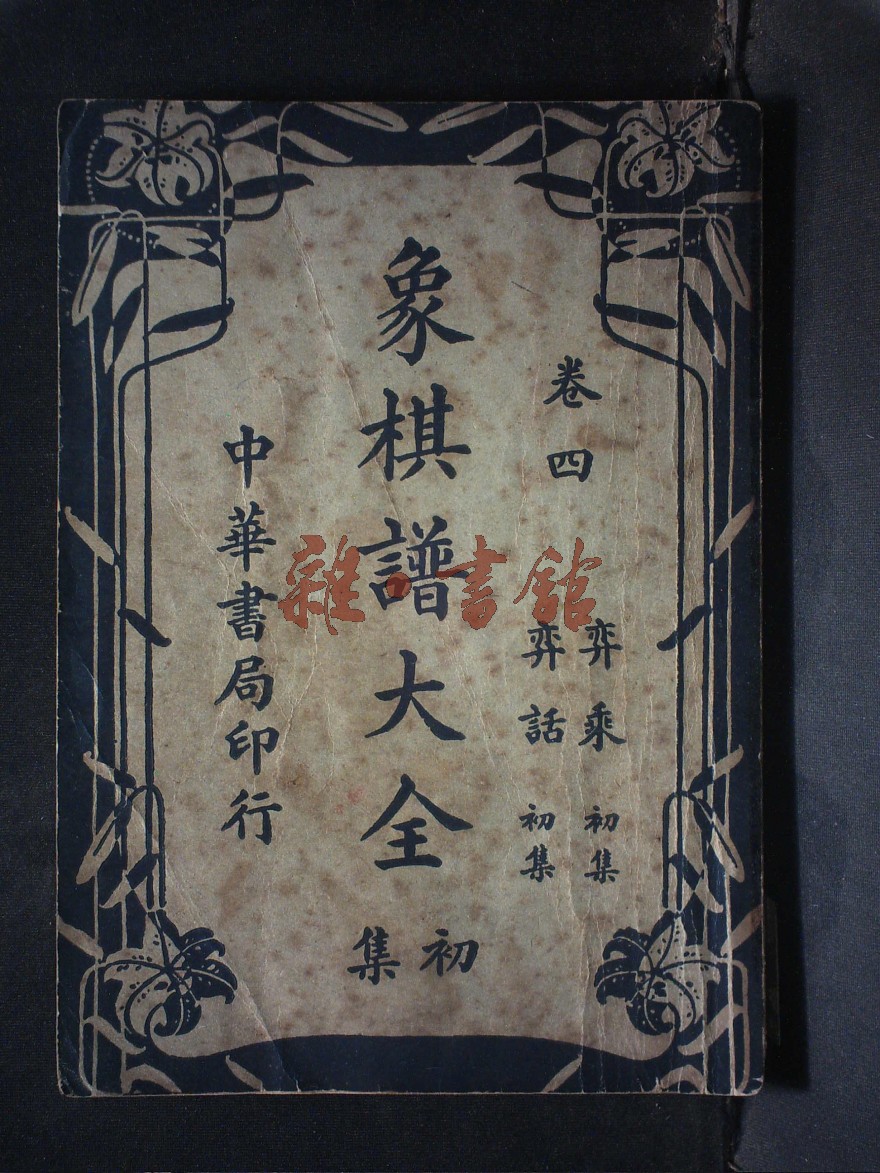 卷四
弈乘 初集
弈話 初集
象棋譜大全
初集
中華書局印行
雜·書館